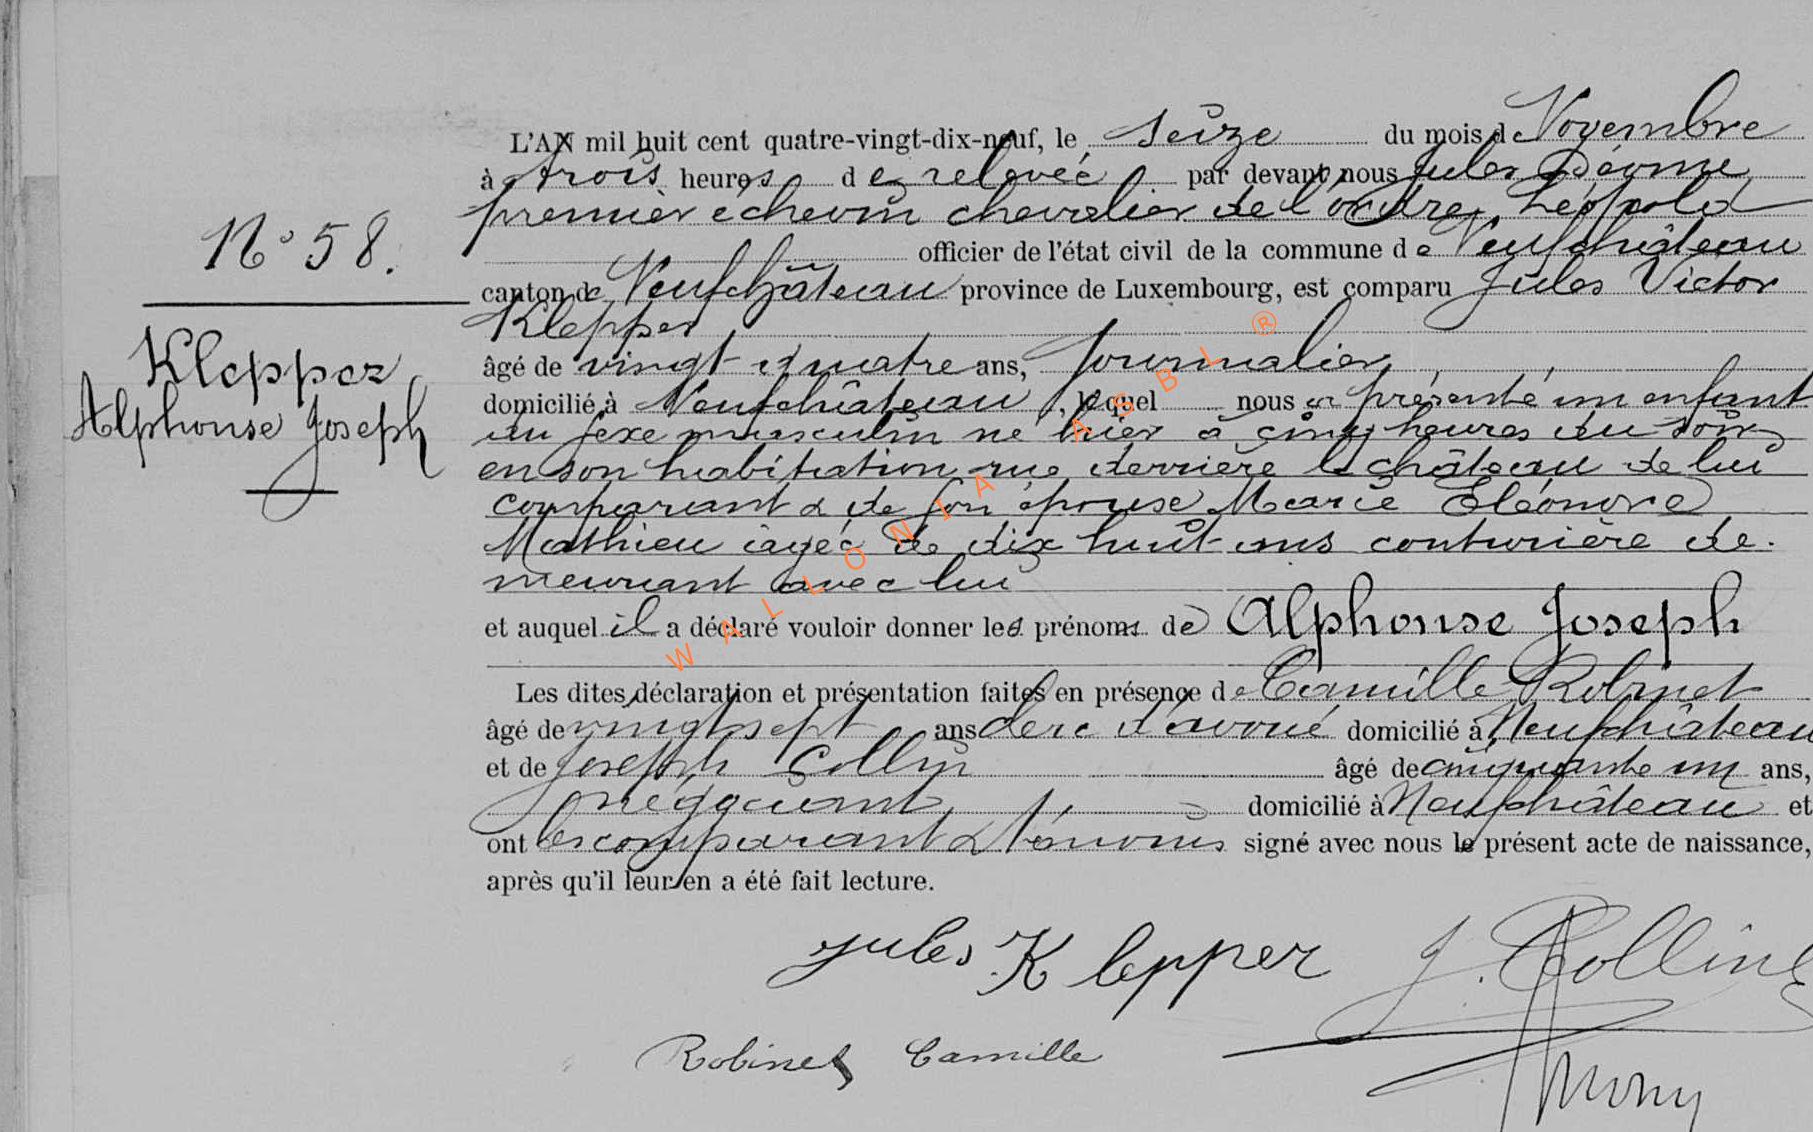 L'AN mil huit cent quatre-vingt-dix-neuf, le seize du mois de Novembre
à trois heures de relevée par devant nous Jules
premier échevin chevalier de l'ordre Léopold
officier de l'état civil de la commune de Neufchâteau
canton de Neufchâteau province de Luxembourg, est comparu Jules Victor
Klepper
âgé de vingt quatre ans, journalier
domicilié à Neufchâteau, lequel nous a présenté un enfant
du sexe masculin né hier à cinq heures du soir
en son habitation rue derrière le château de lui
comparant & de son épouse Marie Eléonore
Mathieu âgée de dix huit ans couturière de-
meurant avec lui
et auquel il a déclaré vouloir donner les prénoms de Alphonse Joseph
Les dites déclaration et présentation faites en présence de Camille Robinet
âgé de vingt sept ans clerc d'avoué domicilié à Neufchâteau
et de Joseph Collin âgé de cinquante un ans,
négociant domicilié à Neufchâteau et
ont les comparant & témoins signé avec nous le présent acte de naissance,
après qu'il leur en a été fait lecture.
N° 58.
Klepper
Alphonse Joseph
Jules Klepper J. Collin
Robinet Camille
WALLONIA ASBL ®